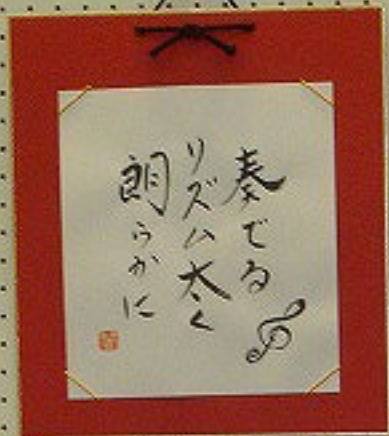 奏でる
リズム太く
朗らかに